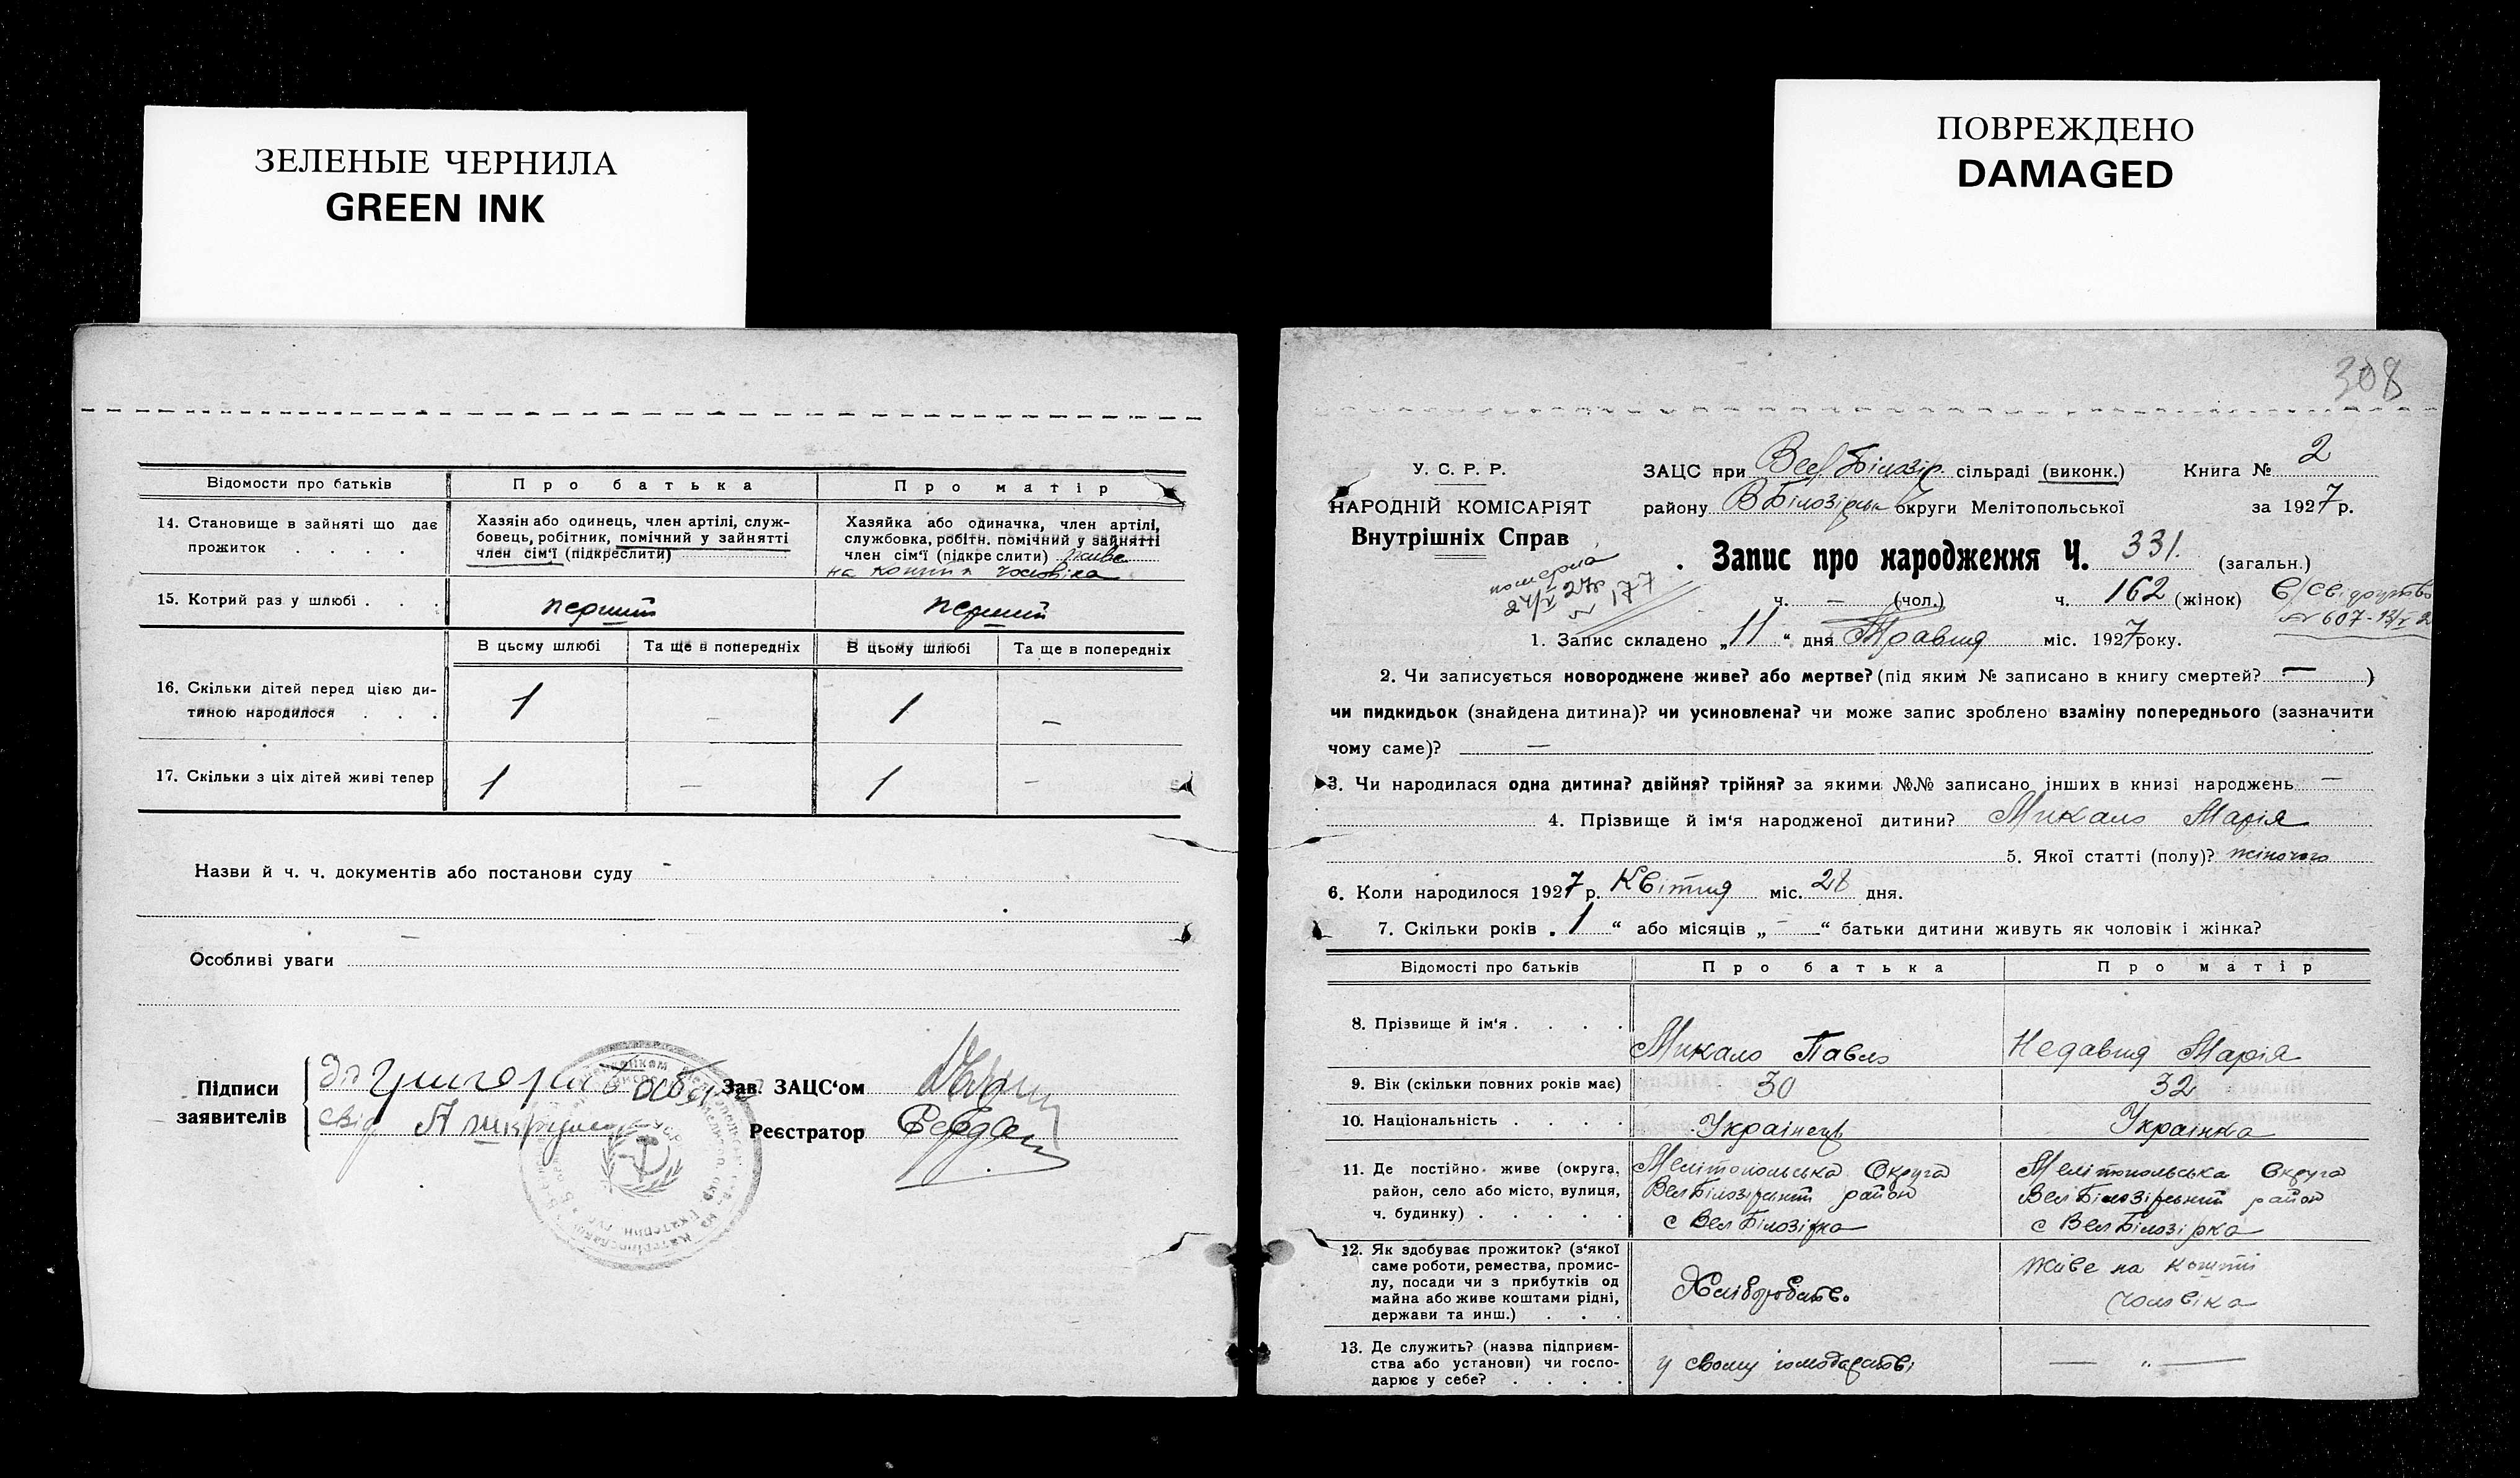 ЗЕЛЕНЫЕ ЧЕРНИЛА
GREEN INK
ПОВРЕЖДЕНО
DAMAGED
Відомости про батьків
Про батька
Про матір
14. Становище в зайняті що дає прожиток . . . .
Хазяін або одинець, член артілі, служ-
бовець, робітник, помічний у зайнятті
член сім'ї (підкреслити)
Хазяйка або одиначка, член артілі,
службовка, робітн. помічний у зайнятті
член сім'ї (підкреслити) живе
на кошти чоловіка
15. Котрий раз у шлюбі . . .
перший
перший
В цьому шлюбі
Та ще в попередніх
В цьому шлюбі
Та ще в попередніх
16. Скільки дітей перед цією ди-
тиною народилося . . .
1
–
1
–
17. Скільки з ціх дітей живі тепер
1
–
1
–
Назви й ч. ч. документів або постанови суду -
Особливі уваги –
Підписи
заявителів
Зав. ЗАЦС'ом
Реєстратор
308
У. С. Р. Р.
НАРОДНІЙ КОМІСАРІЯТ
Внутрішніх Справ
померла
24/V 27р
№ 177
ЗАЦС при Вел Білозір. сільраді (виконк.) Книга № 2
району В Білозірськ округи Мелітопольської за 1927 р.
Запис про народження Ч. 331. (загальн.)
ч. – (чол.) ч. 162 (жінок)
С/свідоцтво
№ 607-
1. Запис складено „11“ дня Травня міс. 1927 року.
2. Чи записується новороджене живе? або мертве? (під яким № записано в книгу смертей? – )
чи пидкидьок (знайдена дитина)? чи усиновлена? чи може запис зроблено взаміну попереднього (зазначити
чому саме)? –
3. Чи народилася одна дитина? двійня? трійня? за якими №№ записано інших в книзі народжень –
4. Прізвище й ім'я народженої дитини? Микало Марія
5. Якої статті (полу)? жіночого
6. Коли народилося 1927 р. Квітня міс. 28 дня.
7. Скільки років „1“ або місяців „–“ батьки дитини живуть як чоловік і жінка?
Відомості про батьків
Про батька
Про матір
8. Прізвище й ім'я . . . .
Микало Павло
Недавня Марія
9. Вік (скільки повних років має)
30
32
10. Національність . . . .
Українець
Українка
11. Де постійно живе (округа,
район, село або місто, вулиця,
ч. будинку) . . . . .
Мелітопольська Округа
Вел Білозірський район
с Вел Білозірка
Мелітопольська Округа
Вел Білозірський район
с Вел Білозірка
12. Як здобуває прожиток? (з'якої
саме роботи, ремества, промис-
лу, посади чи з прибутків од
майна або живе коштами рідні,
держави та инш.) . . .
Хліборобство
живе на кошти
чоловіка
13. Де служить? (назва підприєм-
ства або установи) чи госпо-
дарює у себе? . . . .
у свому господарстві
— „ —